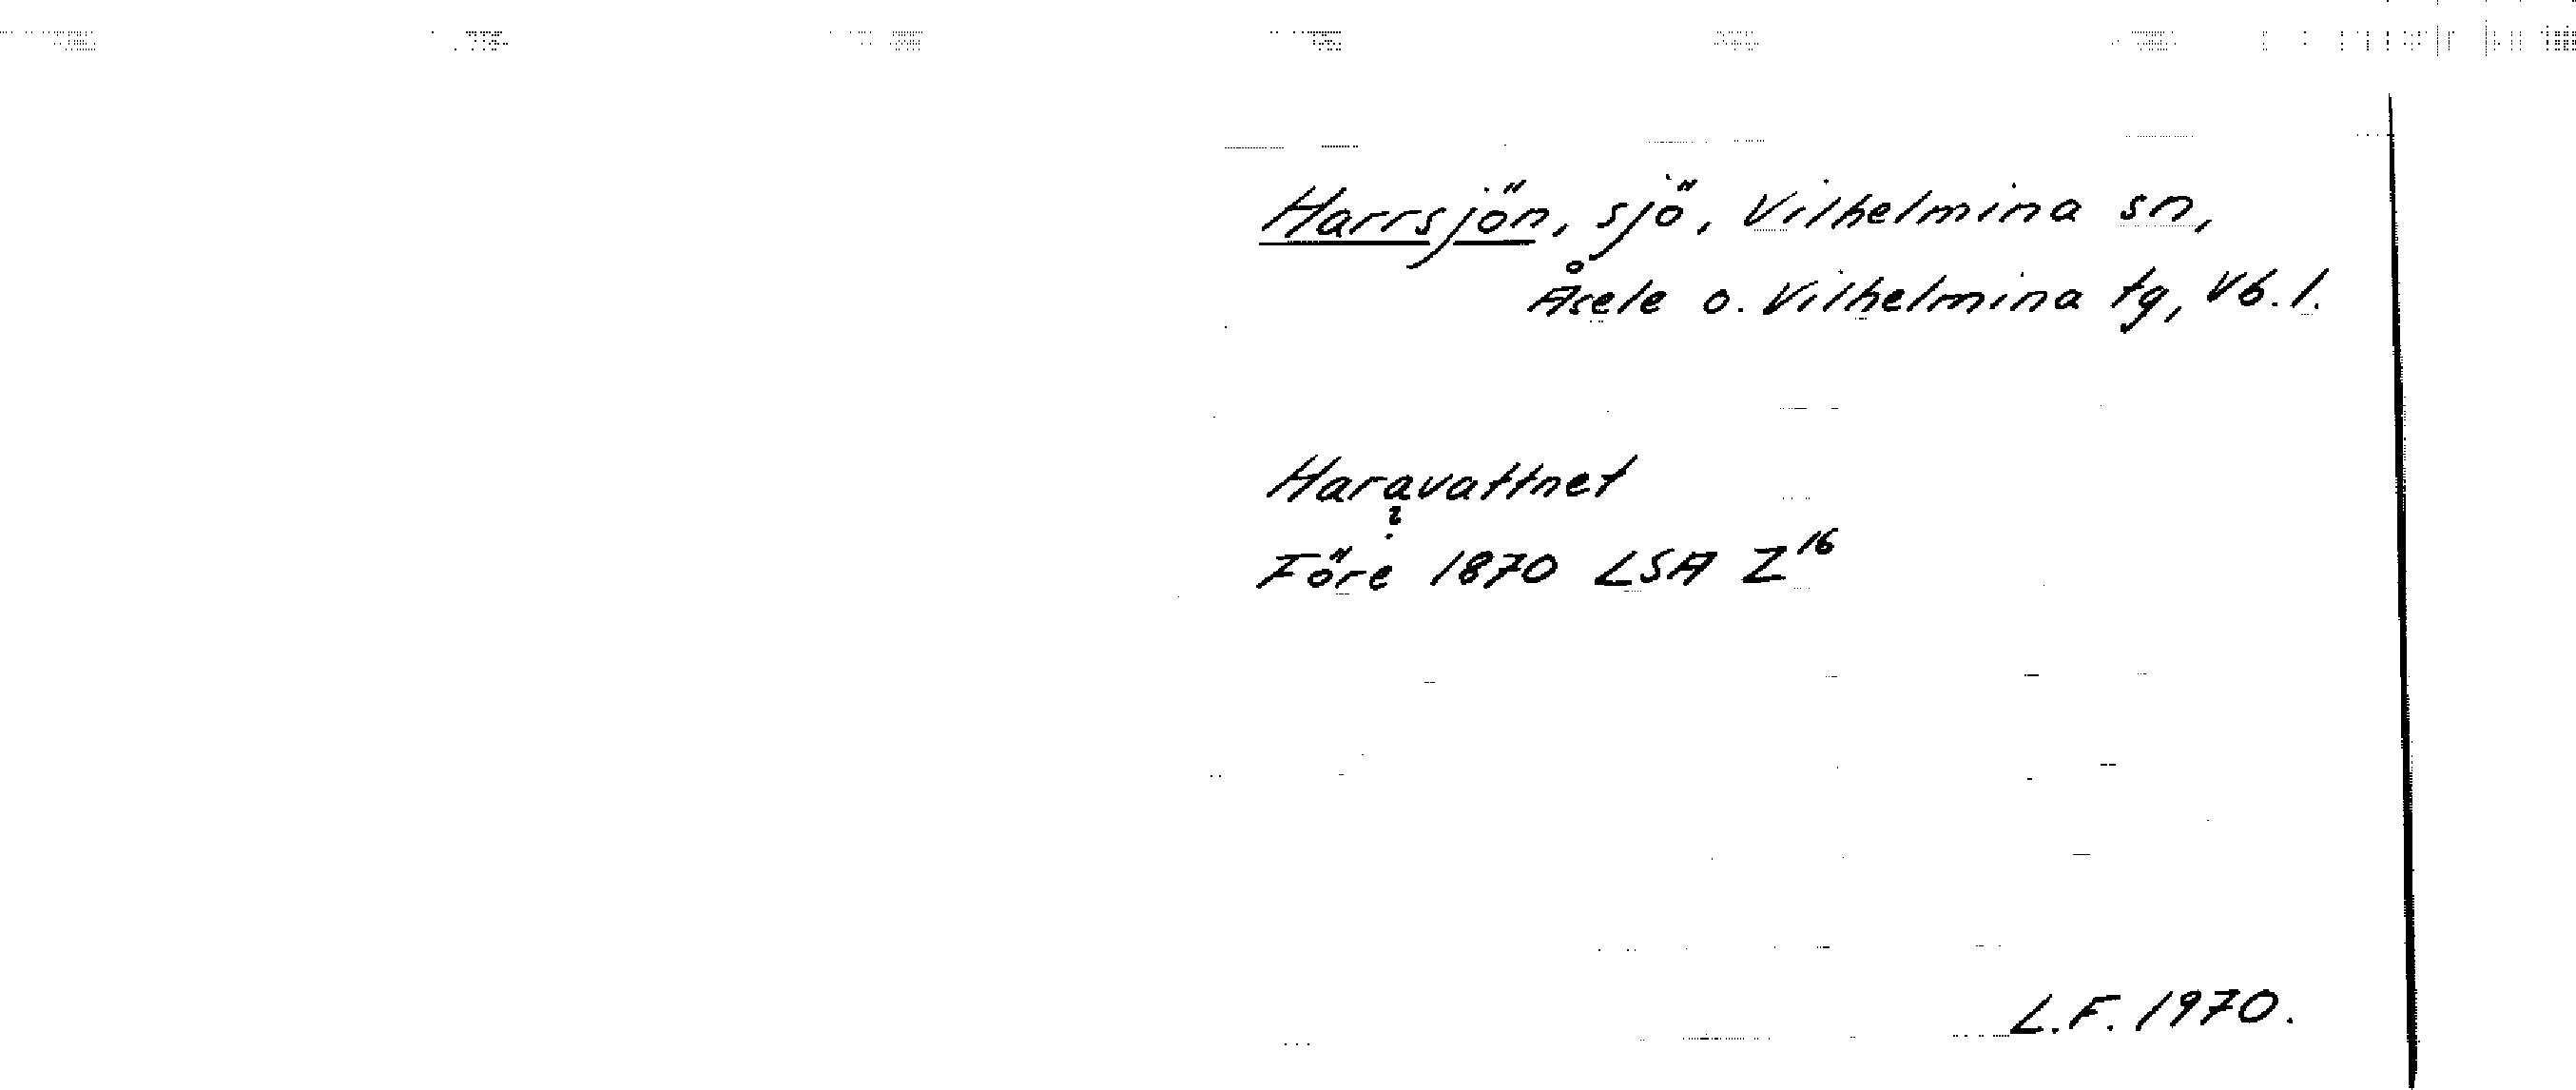 Harrsjön, sjö, Vilhelmina sn,
Åsele o. Vilhelmina tg, Vb. l.
Haravattnet
?
Före 1870 LSA Z16
L.F. 1970.